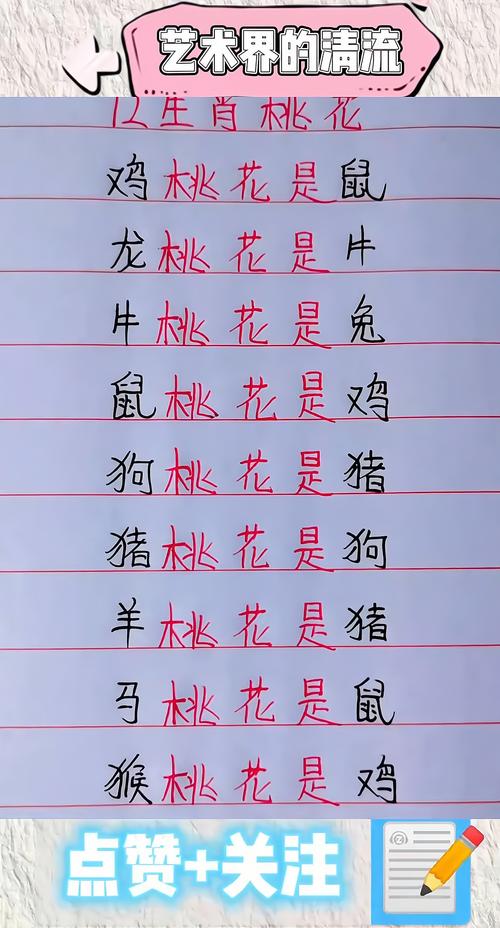 艺术界的清流
12生肖桃花
鸡桃花是鼠
龙桃花是牛
牛桃花是兔
鼠桃花是鸡
狗桃花是猪
猪桃花是狗
羊桃花是猪
马桃花是鼠
猴桃花是鸡
点赞+关注